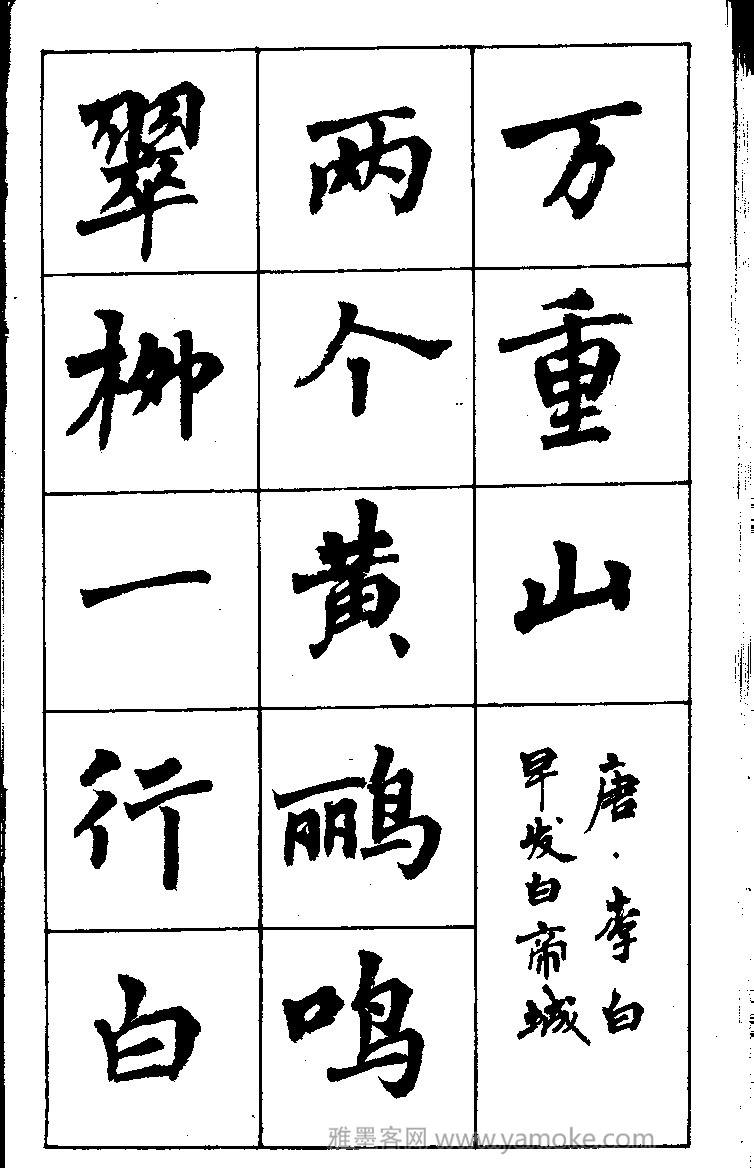 万重山
唐·李白
早发白帝城
两个黄鹂鸣
翠柳一行白
雅墨客网 www.yamoke.com